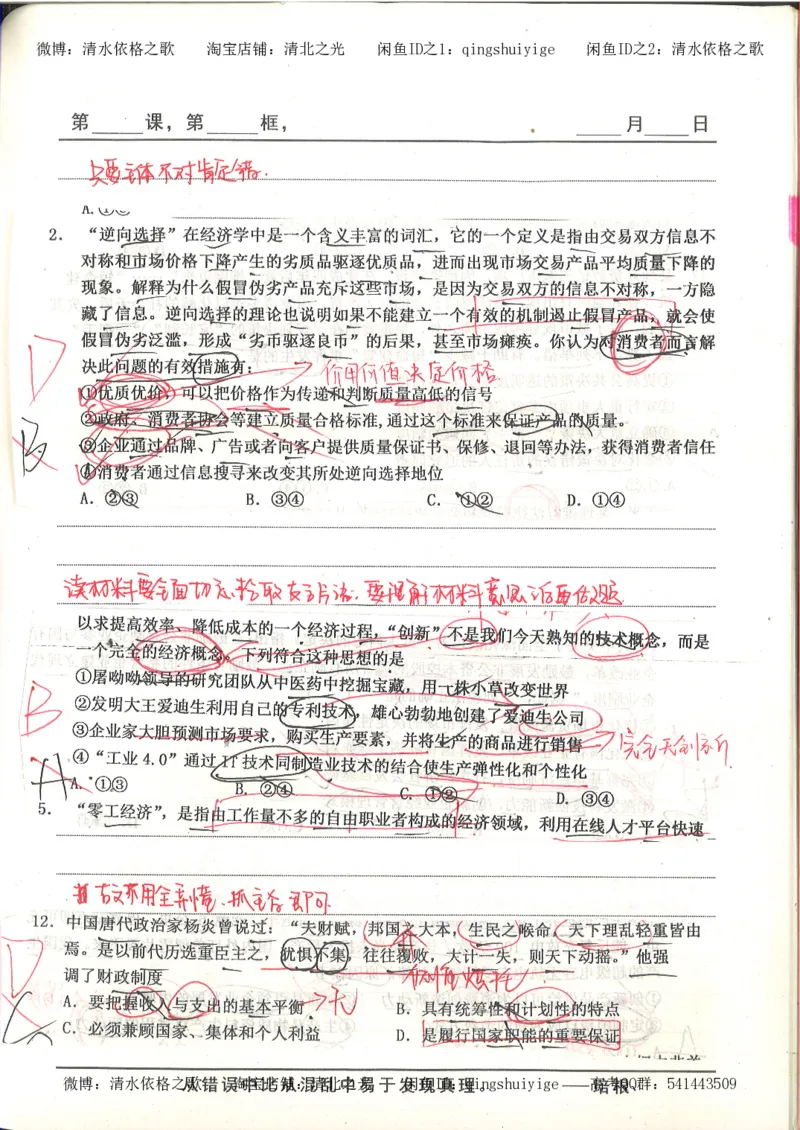 微博：清水依格之歌 淘宝店铺：清北之光 闲鱼ID之1：qingshuiyige 闲鱼ID之2：清水依格之歌
第____课，第____框， ____月____日
只要主体不对肯定错.
A.①③
2. “逆向选择”在经济学中是一个含义丰富的词汇，它的一个定义是指由交易双方信息不
对称和市场价格下降产生的劣质品驱逐优质品，进而出现市场交易产品平均质量下降的
现象。解释为什么假冒伪劣产品充斥这些市场，是因为交易双方的信息不对称，一方隐
藏了信息。逆向选择的理论也说明如果不能建立一个有效的机制遏止假冒产品，就会使
假冒伪劣泛滥，形成“劣币驱逐良币”的后果，甚至市场瘫痪。你认为对消费者而言解
决此问题的有效措施有：
价用价值决定价格
①优质优价，可以把价格作为传递和判断质量高低的信号
D
②政府、消费者协会等建立质量合格标准，通过这个标准来保证产品的质量。
B
③企业通过品牌、广告或者向客户提供质量保证书、保修、退回等办法，获得消费者信任
④消费者通过信息搜寻来改变其所处逆向选择地位
A. ②③ B. ③④ C. ①② D. ①④
读材料要全面切忌 要理解材料意思后再做题
以求提高效率、降低成本的一个经济过程，“创新”不是我们今天熟知的技术概念，而是
一个完全的经济概念。下列符合这种思想的是
①屠呦呦领导的研究团队从中医药中挖掘宝藏，用一株小草改变世界
②发明大王爱迪生利用自己的专利技术，雄心勃勃地创建了爱迪生公司
B
③企业家大胆预测市场要求，购买生产要素，并将生产的商品进行销售
完全无创新
④“工业 4.0”通过 IT 技术同制造业技术的结合使生产弹性化和个性化
A
A. ①③ B. ②④ C. ①② D. ③④
5. “零工经济”，是指由工作量不多的自由职业者构成的经济领域，利用在线人才平台快速
古文不用全弄懂，抓主旨即可
12. 中国唐代政治家杨炎曾说过：“夫财赋，邦国之大本，生民之喉命，天下理乱轻重皆由
焉。是以前代历选重臣主之，犹惧不集，往往覆败，大计一失，则天下动摇。”他强
D
调了财政制度
A. 要把握收入与支出的基本平衡 B. 具有统筹性和计划性的特点
无
C
C. 必须兼顾国家、集体和个人利益 D. 是履行国家职能的重要保证
从错误中比从混乱中易于发现真理。——培根
微博：清水依格之歌 淘宝店铺：清北之光 闲鱼ID：qingshuiyige 高考QQ群：541443509